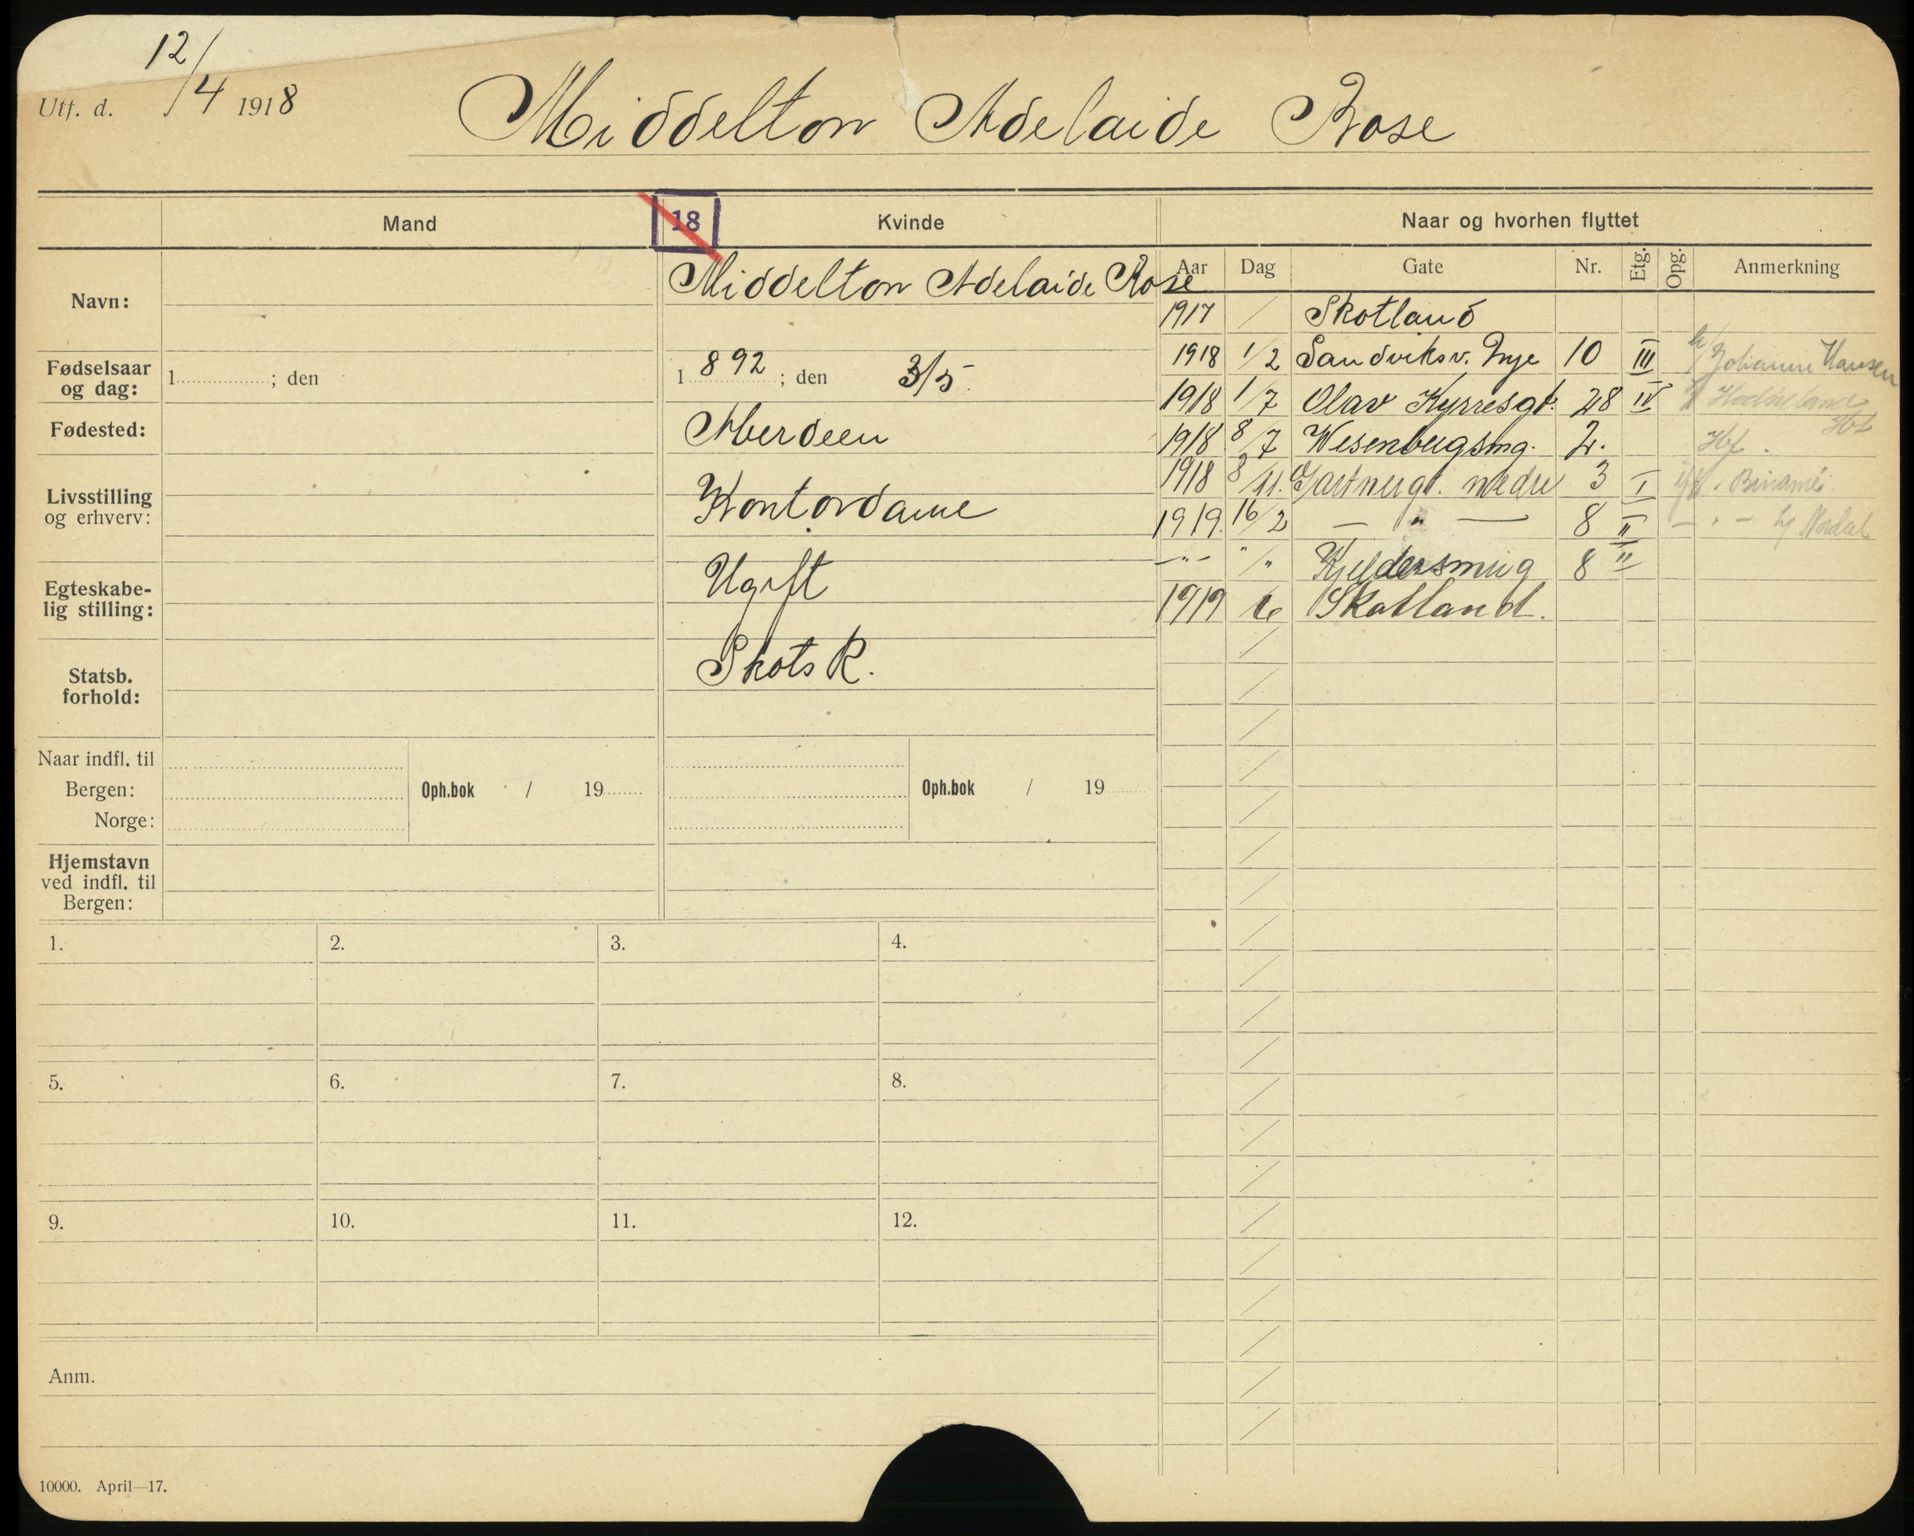 Utf. d. 12/4 1918
Middelton Adelaide Rose
Mand
18
Kvinde
Naar og hvorhen flyttet
Aar Dag Gate Nr. Etg. Opg. Anmerkning
Navn:
Middelton Adelaide Rose
1917 / Skotland
Fødselsaar
og dag:
1 ; den
1892 ; den 3/5.
1918 1/2 Sandviksv. Nye 10 III Johanne Hansen
1918 1/7 Olav Kyrresgt. 28 IV
Fødested:
Aberdeen
1918 8/7 Wesenbergsmg. 2.
1918 /11. Gartnergt. nedre 3 I
Livsstilling
og erhverv:
Kontordame
1919. 16/2 — " — 8 II
Egteskabe-
lig stilling:
Ugift
-"- "/" Kjeldersmug 8 II
1919 6 Skotland.
Statsb.
forhold:
Skotsk R.
Naar indfl. til
Bergen:
Norge:
Oph.bok / 19
Oph.bok / 19
Hjemstavn
ved indfl. til
Bergen:
1. 2. 3. 4.
5. 6. 7. 8.
9. 10. 11. 12.
Anm.
10000. April—17.